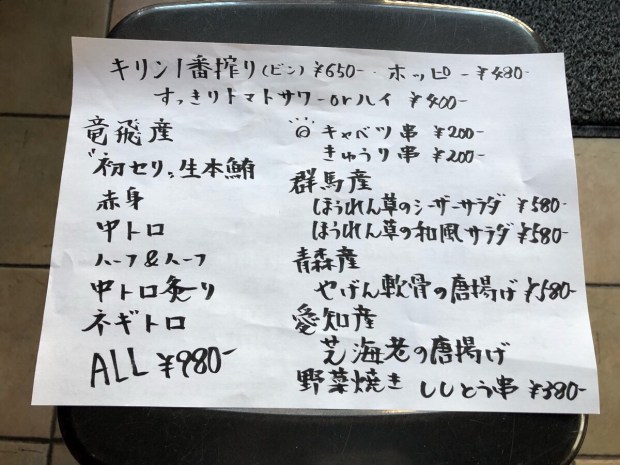 キリン1番搾り(ビン)¥650-. ホッピー ¥480-
すっきりトマトサワーorハイ ¥400-
竜飛産
"初セリ"生本鮪
赤身
中トロ
ハーフ&ハーフ
中トロ炙り
ネギトロ
ALL ¥980-
キャベツ串 ¥200-
きゅうり串 ¥200-
群馬産
ほうれん草のシーザーサラダ ¥580-
ほうれん草の和風サラダ ¥580-
青森産
やげん軟骨の唐揚げ ¥580-
愛知産
芝海老の唐揚げ
野菜焼き ししとう串 ¥380-